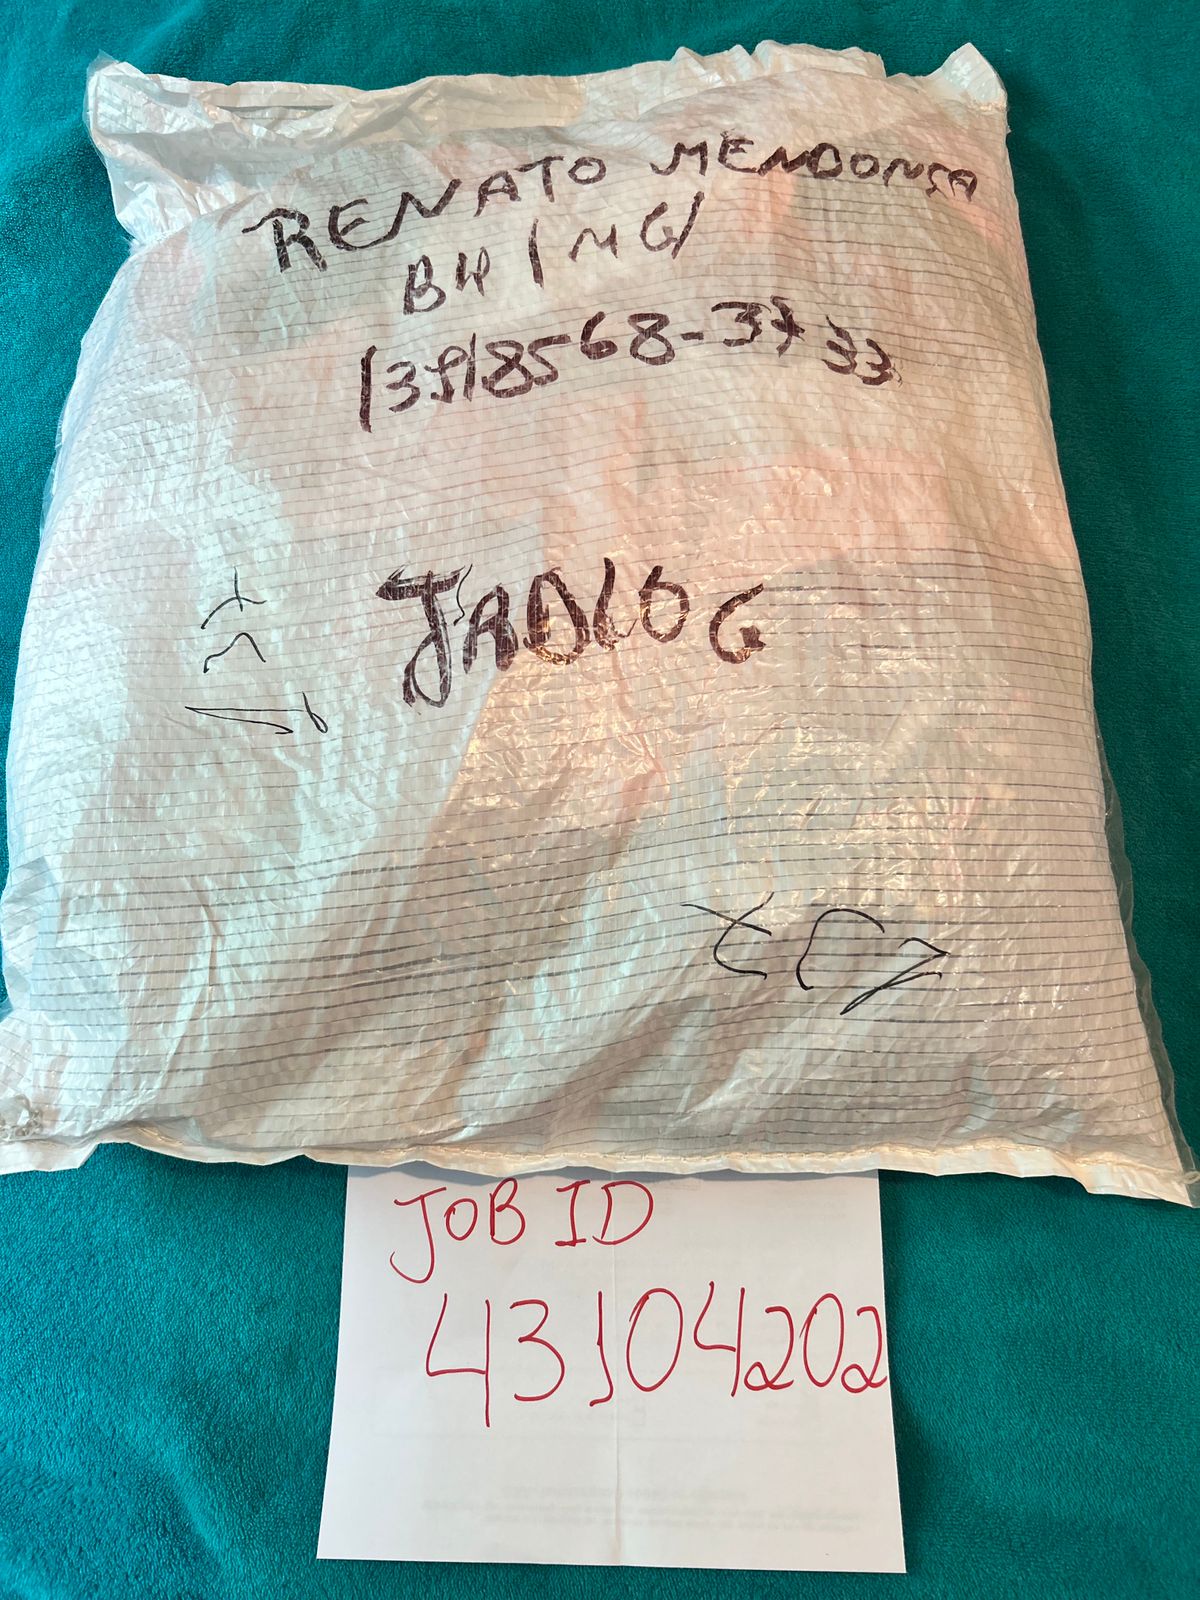 RENATO MENDONÇA
BH (MG)
(31)8568-3733
JADLOG
JOB ID
43104202